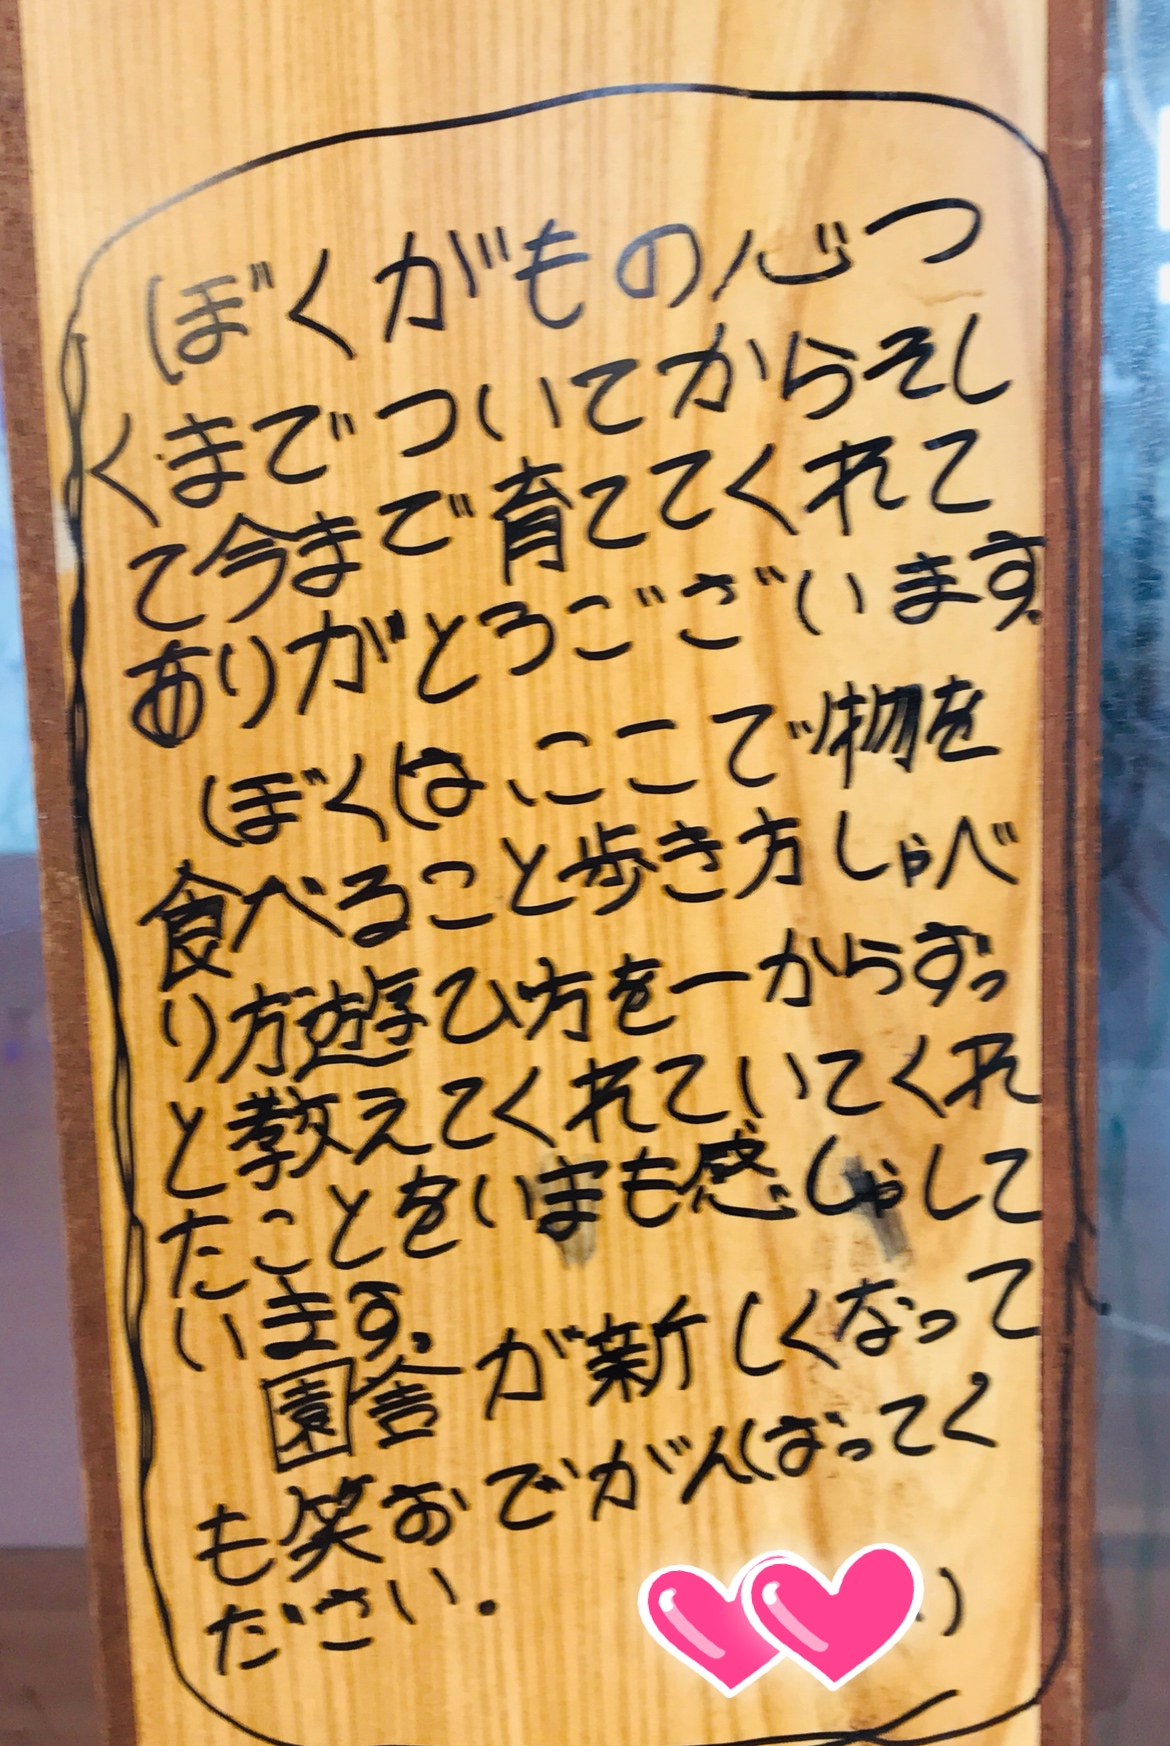 ぼくがもの心つ
くまでついてからそし
て今まで育ててくれて
ありがとろございます。
ぼくは、ここで物を
食べること歩き方しゃべ
り方遊び方を一からずっ
と教えてくれていてくれ
たことをいまも感しゃして
います。
園舎が新しくなって
も笑おでがんばってく
ださい.